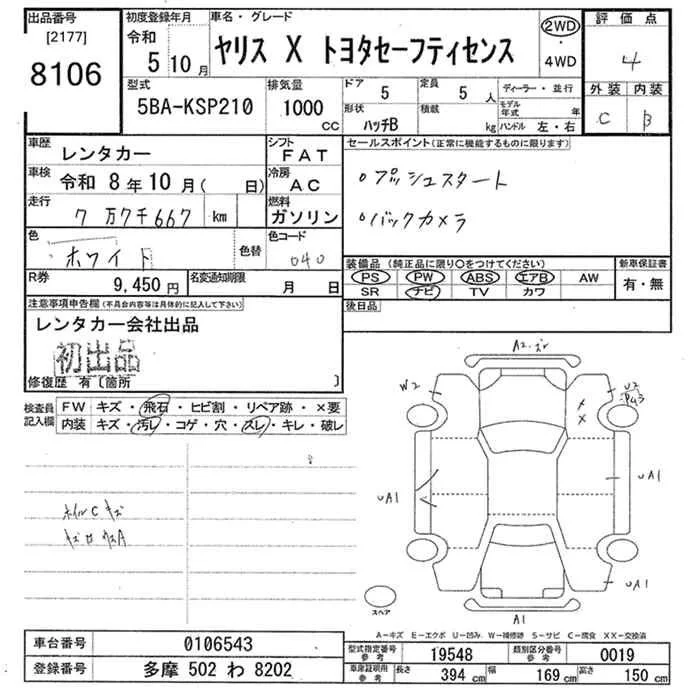 出品番号
[2177]
8106
初度登録年月
令和
5 10月
車名・グレード
ヤリス X トヨタセーフティセンス
2WD
・
4WD
評価点
4
外装 内装
C B
型式
5BA-KSP210
排気量
1000
CC
ドア 5
形状
ハッチB
定員 5人
積載 kg
ディーラー・並行
モデル年式 年
ハンドル 左・右
車歴
レンタカー
シフト
FAT
車検 令和 8年10月( 日)
冷房
AC
走行
7万7千667 km
燃料
ガソリン
色
ホワイト
色替
色コード
040
R券
9,450円
名変通知期限
月 日
セールスポイント(正常に機能するものに限ります)
○プッシュスタート
○バックカメラ
装備品(純正品に限り○をつけてください)
PS PW ABS エアB AW
SR ナビ TV カワ
新車保証書
有・無
後日品
注意事項申告欄(不具合内容等は具体的に記入して下さい)
レンタカー会社出品
初出品
修復歴 有〔箇所 〕
検査員
記入欄
FW キズ・飛石・ヒビ割・リペア跡・×要
内装 キズ・汚レ・コゲ・穴・スレ・キレ・破レ
ホイルC キズ
W2
U2
UA1
UA1
UA1
A1
スペア
A-キズ E-エクボ U-凹み W-補修跡 S-サビ C-腐食 XX-交換済
車台番号 0106543
登録番号 多摩 502 わ 8202
型式指定番号
参考
19548
類別区分番号
参考
0019
車庫証明用
参考
長さ 394 cm
幅 169 cm
高さ 150 cm